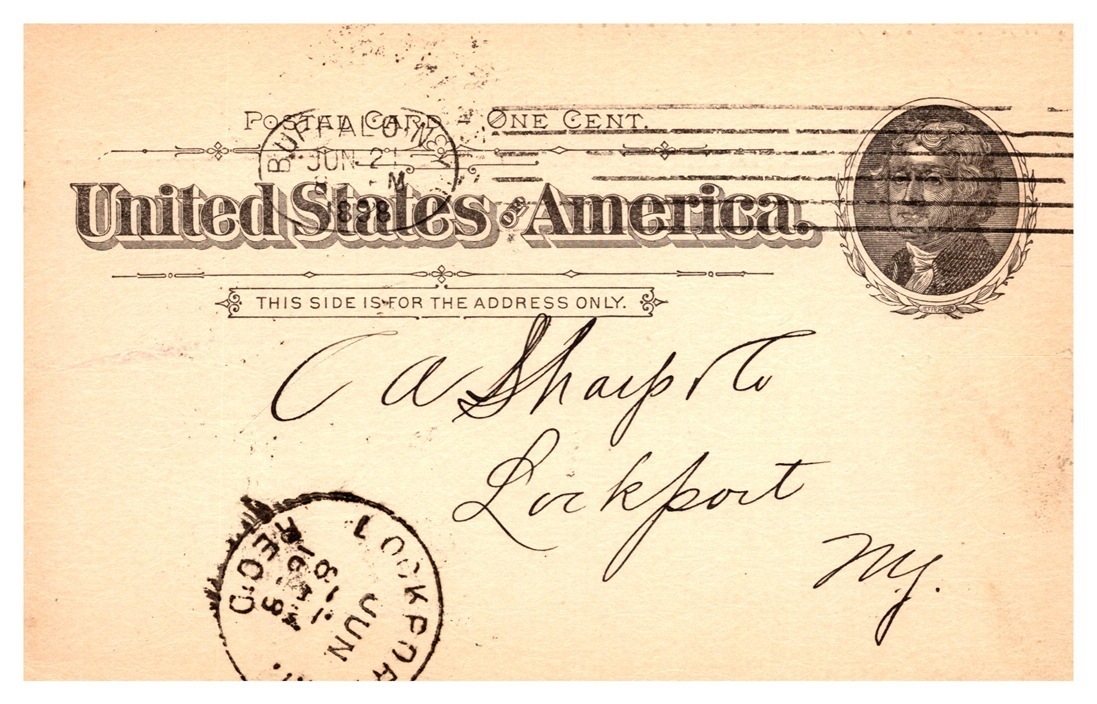 POSTAL CARD – ONE CENT.
BUFFALO, N.Y.
JUN 21
M
1898
United States of America.
JEFFERSON
THIS SIDE IS FOR THE ADDRESS ONLY.
C A Sharp & Co
Lockport
NY.
LOCKPORT
JUN
REC'D